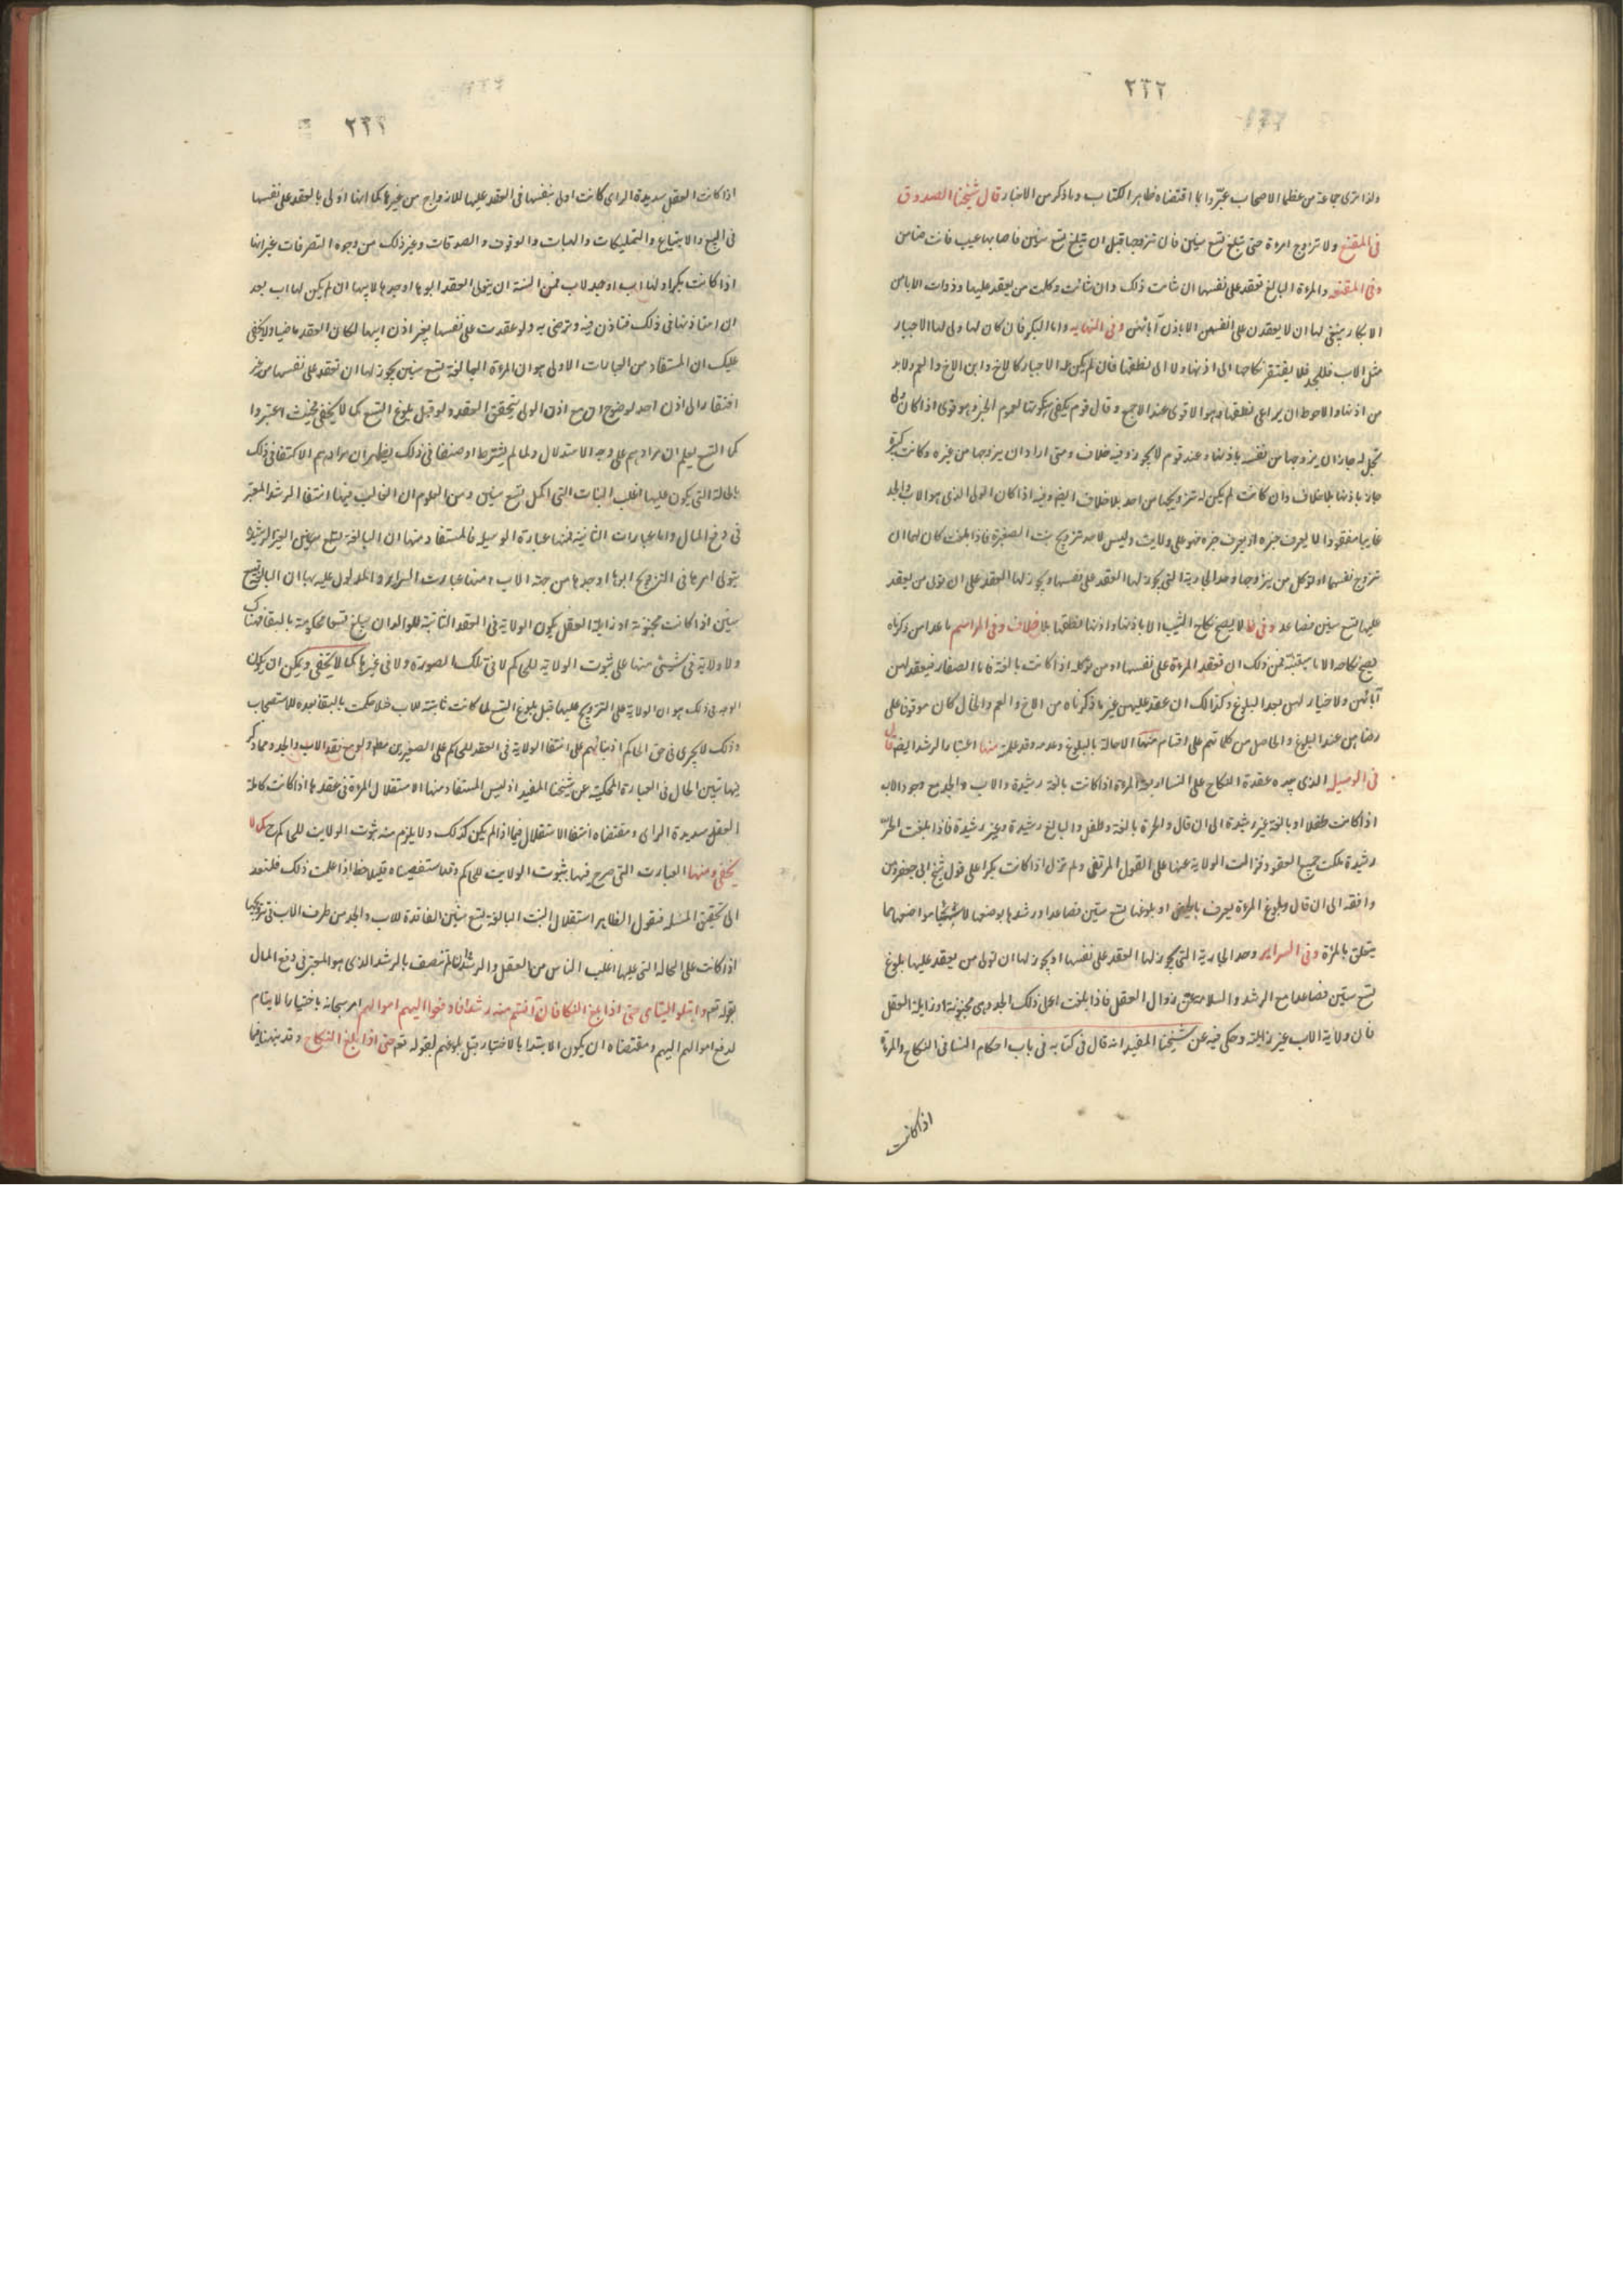 ٢٢٢
ولذا ترى جماعة من عظما الاصحاب عبّروا بما اقتضاه ظاهر الكتاب وما ذكر من الاخبار قال شيخنا الصدوق
فى المقنع ولا تزوج امرءة حتى تبلغ تسع سنين فان تزوجها قبل ان تبلغ تسع سنين فاصابها عيب فانت ضامن
وفى المقنعه والمرءة البالغ تعقد على نفسها ان شاءت ذلك وان شائت وكلت من يعقد عليها وذوات الابا من
الابكار ينبغى لها ان لا يعقدن على انفسهن الا باذن آبائهن وفى النهايه واما البكر فان كان لها ولى لها الاجبار
مثل الاب والجد فلا يفتقر نكاحها الى اذنها ولا الى نطقها فان لم يكن له الاجبار كالاخ وابن الاخ والعم ولابد
من اذنها والاحوط ان يراعى نطقها وهو الاقوى عند الاجمع وقال قوم يكفى سكوتها لعموم الخبر وهو قوى اذا كان ولى
تحل له جاز ان يزوجها من نفسه باذنها وعند قوم لا يجوز وفيه خلاف ومتى اراد ان يزوجها من غيره وكانت كبيرة
جاز باذنها بلا خلاف وان كانت لم يكن له تزويجها من احد بلا خلاف ايضا وفيه اذا كان الولى الذى هو الاب والجد
غايبا مفقودا لا يعرف خبره او يعرف خبره فهو على ولايته وليس لاحد تزويج بنته الصغيرة فاذا بلغت كان لها ان
تزوج نفسها او توكل من يزوجها وحد الجارية التى يجوز لها العقد على نفسها ويجوز لها العقد على ان تولى من يعقد
عليها تسع سنين فصاعدا وفى لا يصح نكاح الثيب الا باذنها واذنها نطقها بلا خلاف وفى المراسم ما عدا من ذكرناه
يصح نكاحه الا فمن ذلك ان تعقد المرءة على نفسها او من توكله اذا كانت بالغة فاما الصغار فيعقد لهن
آبائهن ولا خيار لهن بعد البلوغ وكذلك ان عقد عليهن غير ما ذكرناه من الاخ والعم والخال كان موقوفا على
رضاهن عند البلوغ والحاصل من كلماتهم على اقسام منها الاحالة بالبلوغ وعدمه وقد علمت منها اعتبار الرشد ايضا قال
فى الوسيله الذى بيده عقدة النكاح على النسا اربعة المرءة اذا كانت بالغة رشيدة والاب والجد مع وجود الاب
اذا كانت طفلا او بالغة غير رشيدة الى ان قال والحرة بالغة وطفل والبالغ رشيدة وغير رشيدة فاذا بلغت الحرة
رشيدة ملكت جميع العقود وزالت الولاية عنها على القول المرتضى ولم تزل اذا كانت بكرا على قول شيخ ابى جعفر ومن
وافقه الى ان قال وبلوغ المرءة يعرف بالحيض او بلوغها تسع سنين فصاعدا ورشدها بوضعها الاشياء مواضعها مما
يتعلق بالمرءة وفى السراير وحد الجارية التى يجوز لها العقد على نفسها او يجوز لها ان تولى من يعقد عليها بلوغ
تسع سنين فصاعدا مع الرشد والسلامة من زوال العقل فاذا بلغت اهل ذلك الحد وهى مجنونة او زايلة العقل
فان ولاية الاب غير زايلة وحكى فيه عن شيخنا المفيد انه قال فى كتابه فى باب احكام النسا فى النكاح والمرءة
اذا كانت
٢٢٢
اذا كانت العقل سديدة الراى كانت اولى بنفسها فى العقد عليها للازواج من غيرها كما انها اولى بالعقد على نفسها
فى البيع والابتياع والتمليكات والهبات والوقوف والصدقات وغير ذلك من وجوه التصرفات غير انها
اذا كانت بكرا ولها اب او جد لاب فمن السنة ان يتولى العقد ابوها او جدها لابيها ان لم يكن لها اب بعد
ان استاذنها فى ذلك فتاذن فيه وترضى به ولو عقدت على نفسها بغير اذن ابيها لكان العقد ماضيا ولا يخفى
عليك ان المستفاد من العبارات الاولى هو ان المرءة البالغة تسع سنين يجوز لها ان تعقد على نفسها من غير
افتقار الى اذن احد لوضوح ان مع اذن الولى يتحقق العقد ولو قبل بلوغ التسع كما لا يخفى فحيث اعتبروا
كما التسع يعلم ان مرادهم على وجه الاستدلال ولما لم يشترط او صنفا فى ذلك يظهر ان مرادهم الاكتفا فى ذلك
بالحالة التى يكون عليها اغلب البنات التى اكمل تسع سنين ومن المعلوم ان الغالب فيها انتفا الرشد المعتبر
فى دفع المال واما عبارات الثانية فمنها عبارة الوسيله فالمستفاد منها ان البالغة تسع سنين الغير الرشيدة
يتولى امرها فى التزويج ابوها او جدها من جهة الاب ومنها عبارت السراير والمدلول عليه بها ان البالغة تسع
سنين اذا كانت مجنونة او زايلة العقل يكون الولاية فى العقد الثابتة للوالد ان يبلغ تسعا محكومة بالبقا هناك
ولا دلاية فى شيئ منها على ثبوت الولايه للحاكم لا فى تلك الصورة ولا فى غيرها كما لا يخفى ويمكن ان يكون
الوجه فى ذلك هو ان الولاية على التزويج عليها قبل بلوغ التسع لما كانت ثابتة للاب حكمت بالبقا بعده للاستصحاب
وذلك لا يجرى فى حق الحاكم اذ بنائهم على انتفا الولاية فى العقد للحاكم على الصغيرين مطم ولو مع فقد الاب والجد ومما ذكر
يها تبين الحال فى العبارة المحكية عن شيخنا المفيد اذ ليس المستفاد منها الا استقلال المرءة فى عقدها اذا كانت كاملة
العقل سديدة الراى ومقتضاه انتفا الاستقلال فيما اذا لم يكن كذلك ولا يلزم منه ثبوت الولايت للحاكم ح كما لا
يخفى ومنها العبارت التى صرح فيها بثبوت الولايت للحاكم وقد استقصيناه قبل اذا علمت ذلك فلنعد
الى تحقيق المسئله فنقول الظاهر استقلال البنت البالغة تسع سنين الفاقدة للاب والجد من طرف الاب فى تزويجها
اذا كانت على الحالة التى عليها اغلب الناس من العقل والرشد وان لم تتصف بالرشد الذى هو المعتبر فى دفع المال
بقوله تعم وابتلوا اليتامى حتى اذا بلغ النكاح فان آنستم منهم رشدا فادفعوا اليهم اموالهم امر سبحانه باختيار الايتام
لدفع اموالهم اليهم ومقتضاه ان يكون الابتدا بالاختبار قبل بلوغهم لقوله تعم حتى اذا بلغ النكاح وقد بينا فيما